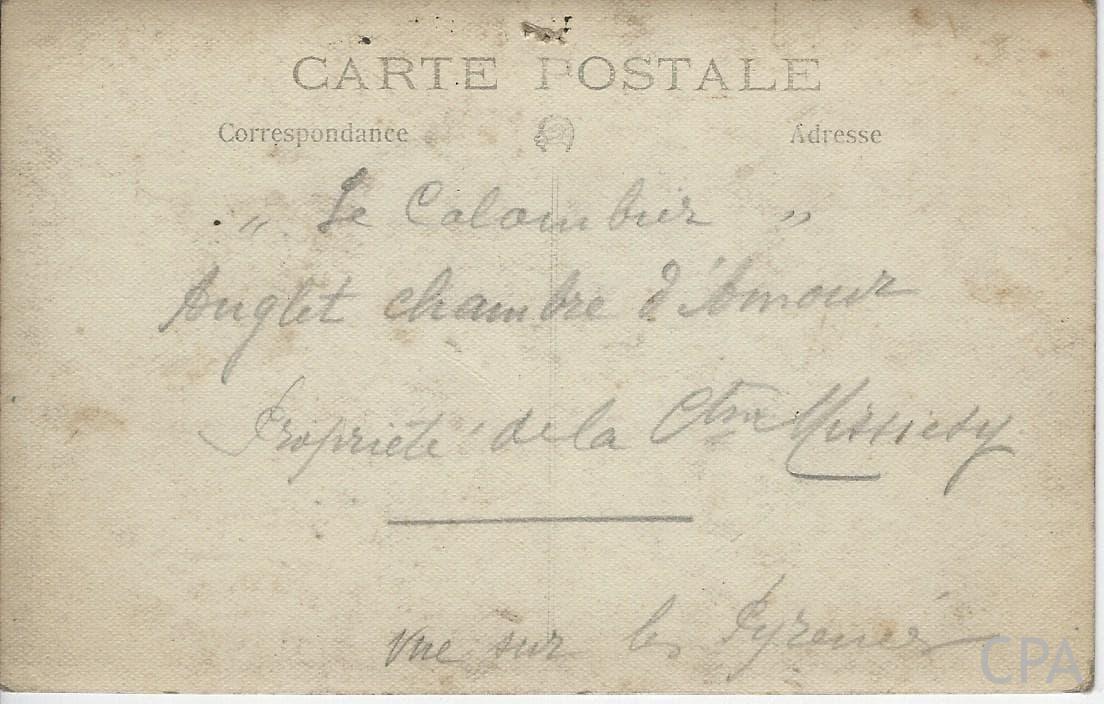 CARTE POSTALE
Correspondance Adresse
„ Le Colombier „
Anglet chambre d'Amour
Propriété de la Ctsse Missiessy
vue sur les Pyrenées
CPA